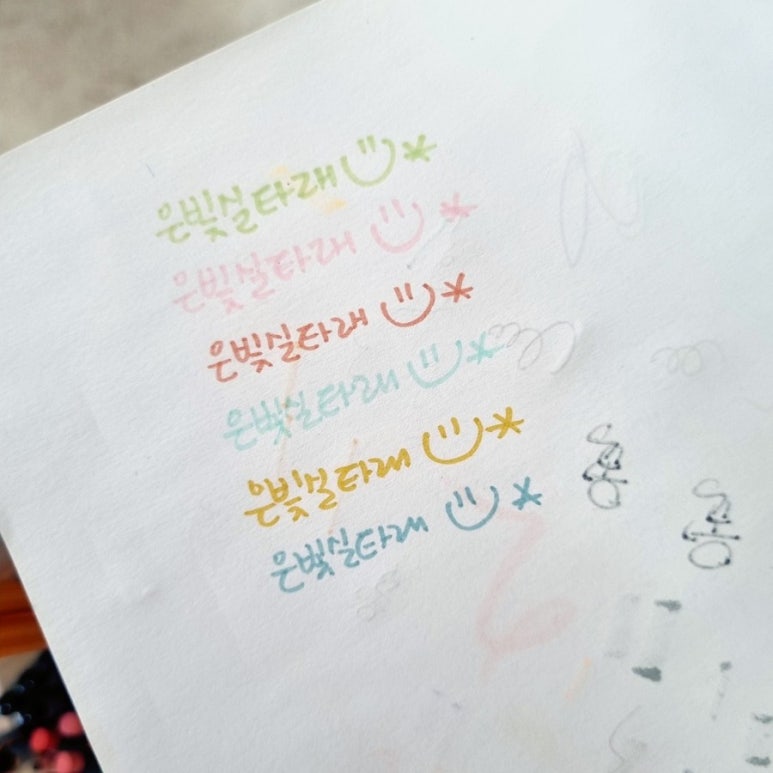 은빛실타래
은빛실타래
은빛실타래
은빛실타래
은빛실타래
은빛실타래